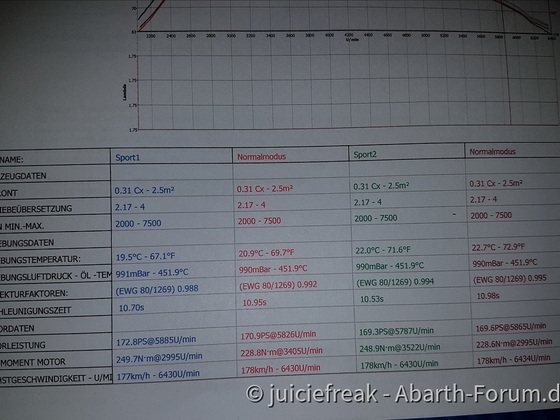 70
63
2200 2400 2600 2800 3000 3200 3400 3600 3800 4000 4200 4400 4600 4800 5000 5200 5400 5600 5800 6000 6200 6400
U/min
1.79
1.75
1.75
Lambda
NAME: Sport1 Normalmodus Sport2 Normalmodus
ZEUGDATEN
ONT 0.31 Cx - 2.5m² 0.31 Cx - 2.5m² 0.31 Cx - 2.5m² 0.31 Cx - 2.5m²
IEBEÜBERSETZUNG 2.17 - 4 2.17 - 4 2.17 - 4 2.17 - 4
N MIN.-MAX. 2000 - 7500 2000 - 7500 2000 - 7500 2000 - 7500
EBUNGSDATEN
EBUNGSTEMPERATUR: 19.5°C - 67.1°F 20.9°C - 69.7°F 22.0°C - 71.6°F 22.7°C - 72.9°F
EBUNGSLUFTDRUCK - ÖL -TEM 991mBar - 451.9°C 990mBar - 451.9°C 990mBar - 451.9°C 990mBar - 451.9°C
EKTURFAKTOREN: (EWG 80/1269) 0.988 (EWG 80/1269) 0.992 (EWG 80/1269) 0.994 (EWG 80/1269) 0.995
HLEUNIGUNGSZEIT 10.70s 10.95s 10.53s 10.98s
ORDATEN
ORLEISTUNG 172.8PS@5885U/min 170.9PS@5826U/min 169.3PS@5787U/min 169.6PS@5865U/min
MOMENT MOTOR 249.7N·m@2995U/min 228.8N·m@3405U/min 248.9N·m@3522U/min 228.6N·m@2995U/min
STGESCHWINDIGKEIT - U/MI 177km/h - 6430U/min 178km/h - 6430U/min 178km/h - 6430U/min 178km/h - 6434U/min
© juiciefreak - Abarth-Forum.d